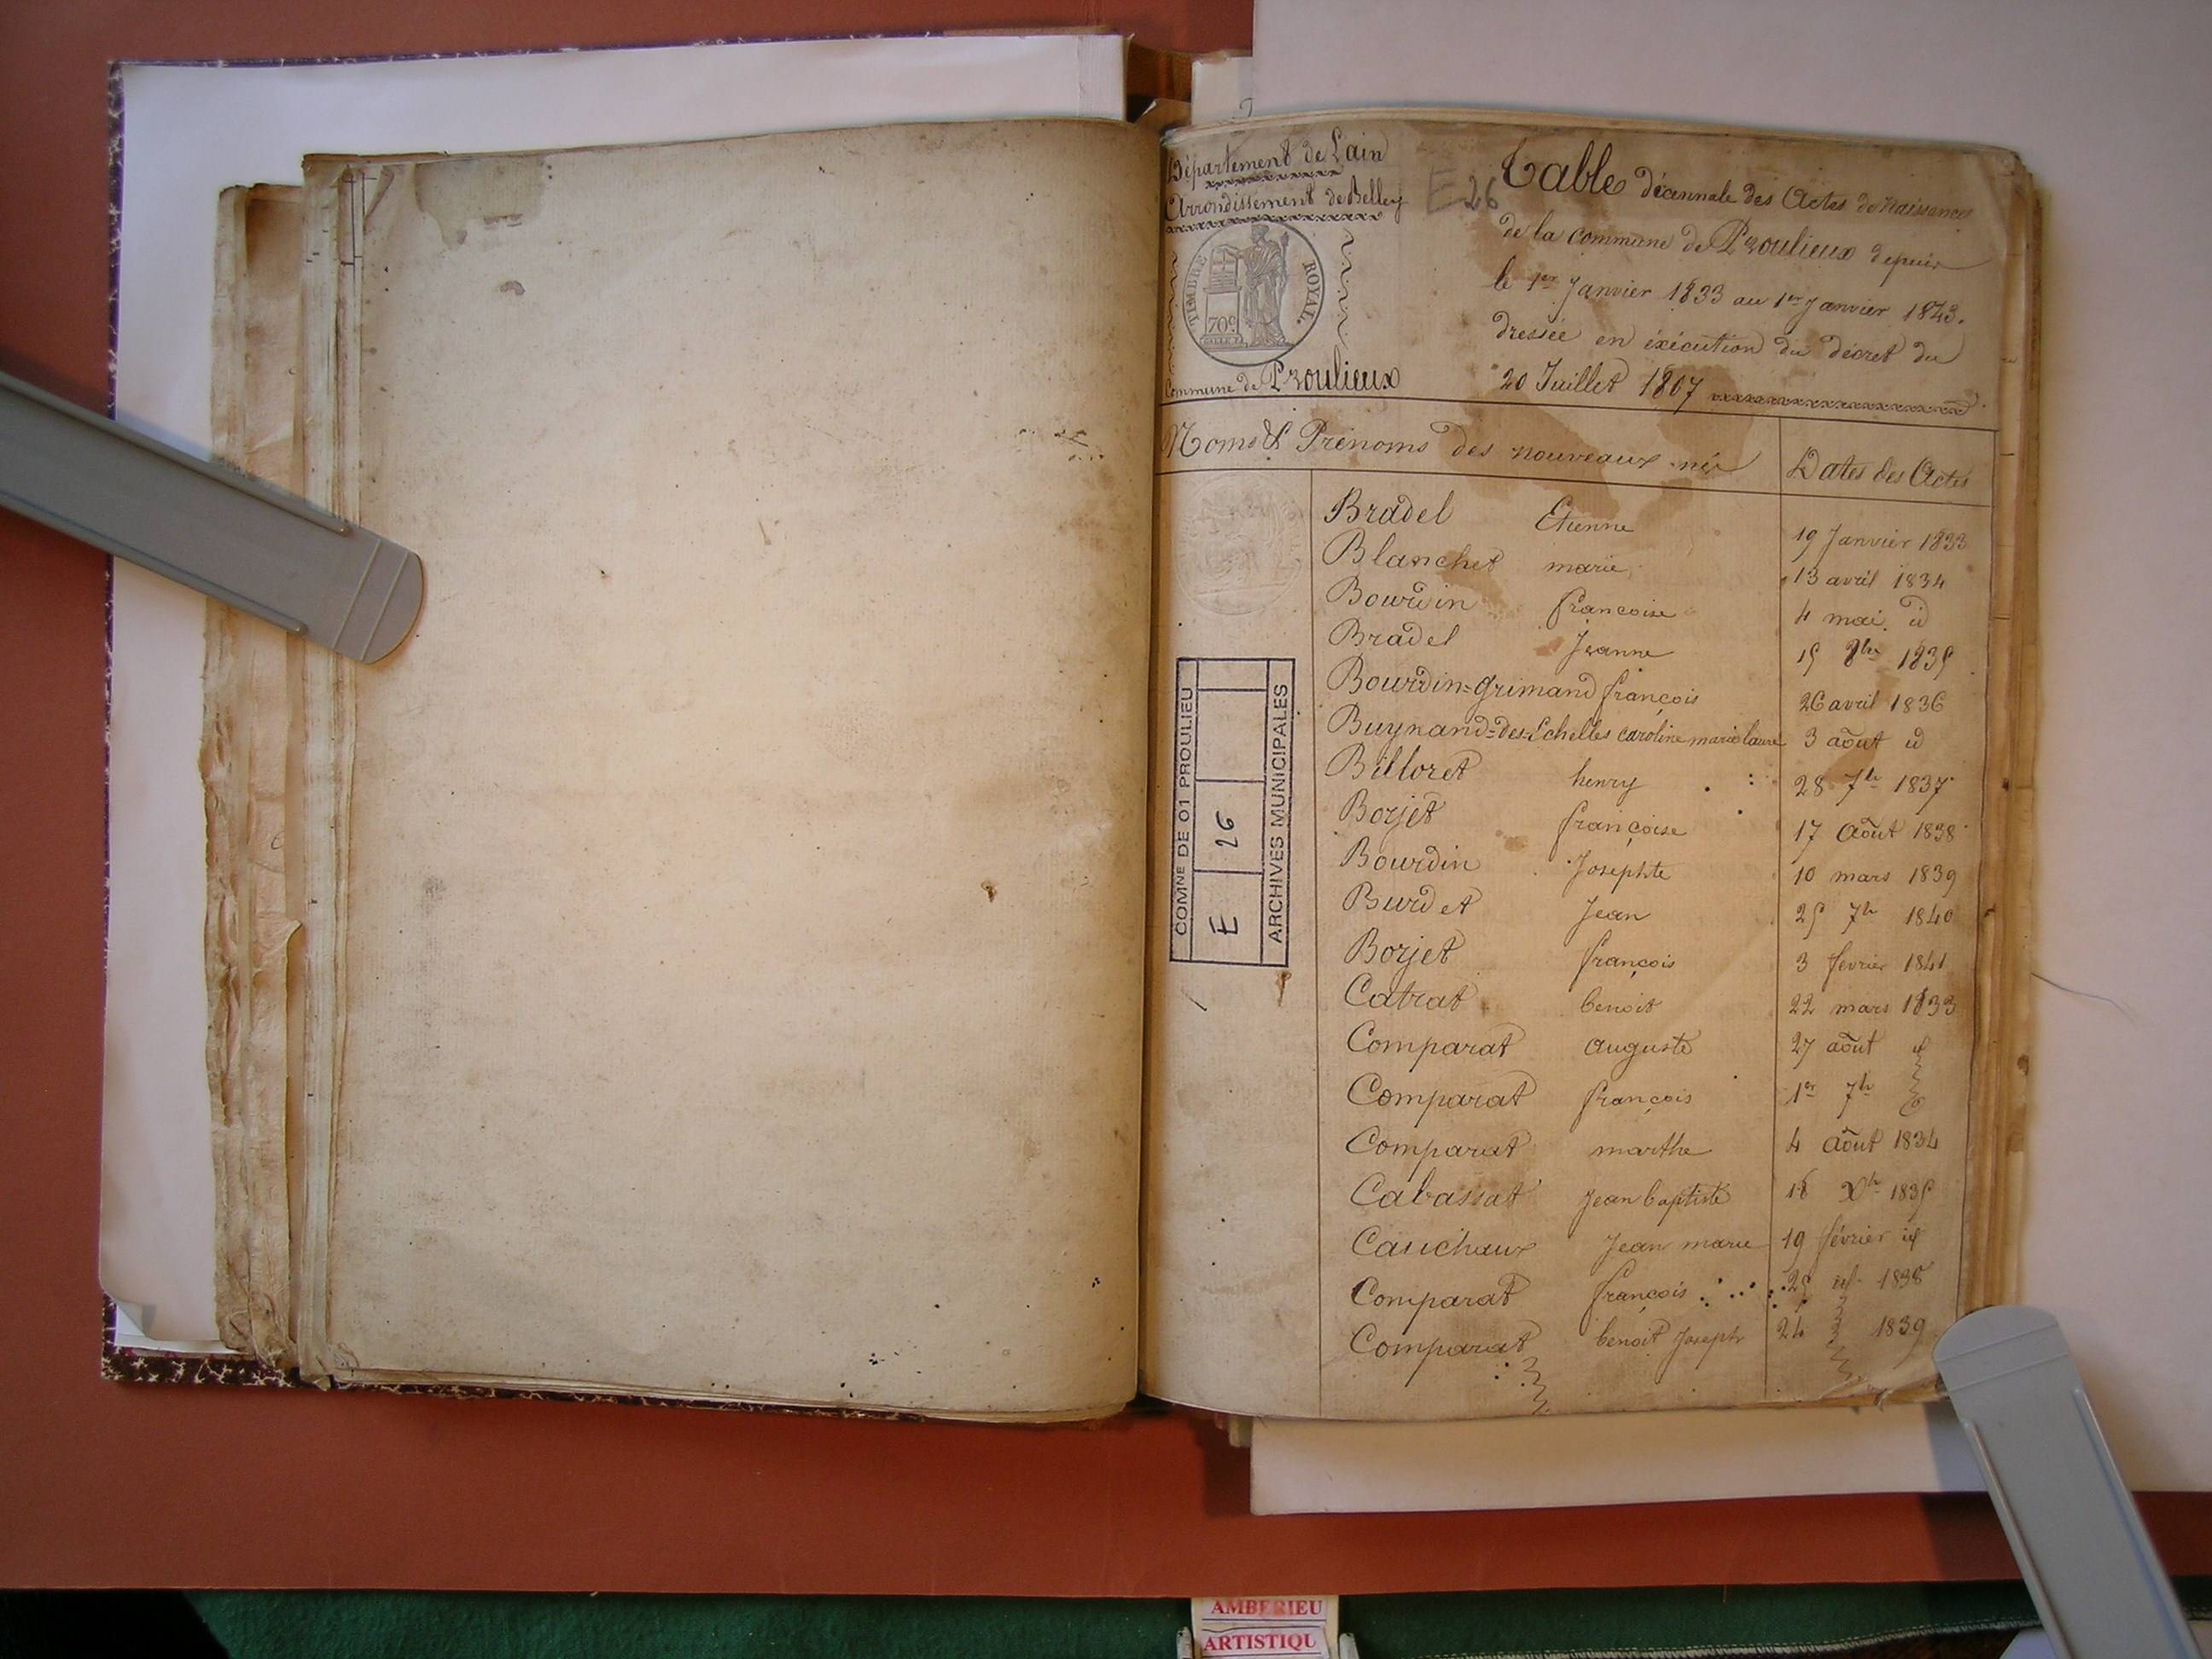 Département de Lain
Arrondissement de Belley
TIMBRE ROYAL.
70c
Commune de Proulieux
E 26
Table décennale des Actes de Naissances
de la commune de Proulieux depuis
le 1er Janvier 1833 au 1er Janvier 1843.
dressée en éxécution du décret du
20 Juillet 1807
Noms & Prénoms des nouveaux-nés Dates des Actes
Bradel Etienne 19 Janvier 1833
Blanchet marie 13 avril 1834
Bourdin françoise 4 mai id
Bradel Jeanne 15 8bre 1835
Bourdin=Grimand françois 26 avril 1836
Buynand=des=Echelles caroline marie laure 3 aôut id
Billoret henry 28 7be 1837
Borjet françoise 17 Aôut 1838
Bourdin Josephte 10 mars 1839
Burdet Jean 25 7be 1840
Borjet françois 3 février 1841
Catrat benoit 22 mars 1833
Comparat auguste 27 aôut id
Comparat françois 1er 7be
Comparat marthe 4 Aôut 1834
Cabassat Jean baptiste 18 Xbe 1835
Cauchaux Jean marie 19 février id
Comparat françois 25 id 1838
Comparat benoit Joseph 24 1839
COMNE DE 01 PROULIEU
E 26
ARCHIVES MUNICIPALES
AMBERIEU
ARTISTIQU